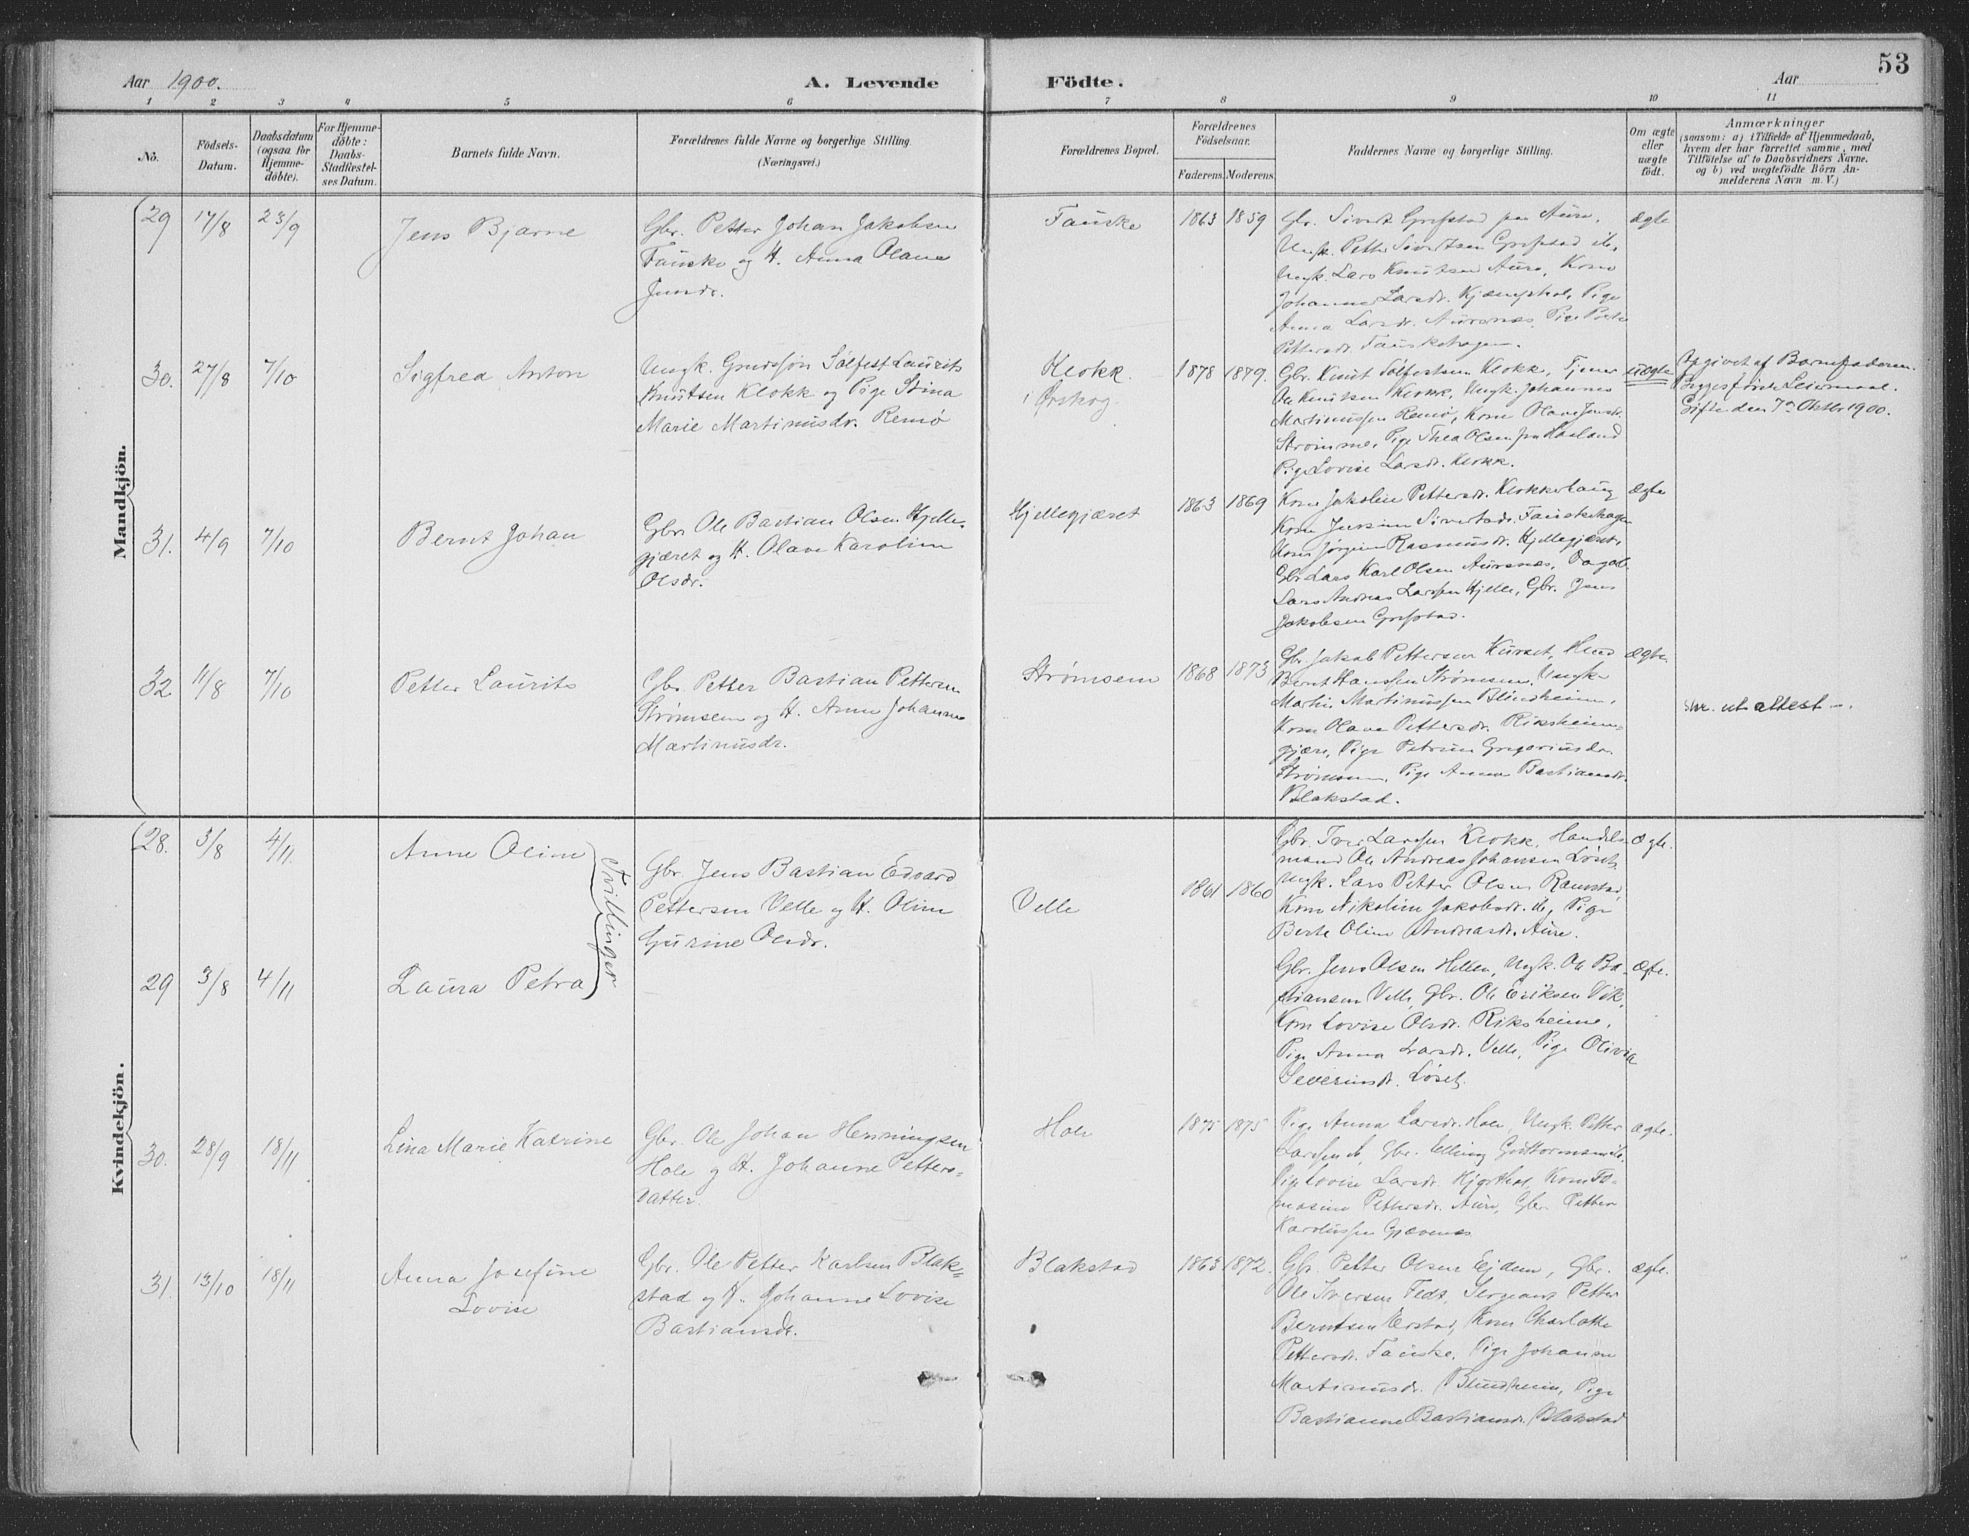 53
Aar 1900.
A. Levende
Födte.
Aar
1 2 3 4 5 6 7 8 9 10 11
No.
Födsels-
Datum.
Daabsdatum
(ogsaa for
Hjemme-
döbte).
For Hjemme-
döbte:
Daabs-
Stadfæstel-
ses Datum.
Barnets fulde Navn.
Forældrenes fulde Navne og borgerlige Stilling.
(Næringsvei.)
Forældrenes Bopæl.
Forældrenes
Födselsaar.
Faderens. Moderens.
Faddernes Navne og borgerlige Stilling.
Om ægte
eller
uægte
födt.
Anmærkninger
(saasom: a) i Tilfælde af Hjemmedaab,
hvem der har forrettet samme, med
Tilföielse af to Daabsvidners Navne.
og b) ved uægtefödte Börn An-
melderens Navn m. V.)
Mandkjön.
29 17/8 23/9
Jens Bjarne
Gbr. Petter Johan Jakobsen
Fauske og H. Anna Olava
Jensdr.
Fauske
1863 1859
Gbr. Sivert Grepstad paa Aure,
Ungk. Petter Sivertsen Grepstad ib.
Ungk. Lars Knutsen Aure, Kone
Johanne Larsdr. Kjæmpehol, Pige
Anna Larsdr. Aurenæs, Pige
Pettersdr. Fauskehagen.
ægte
30. 27/8 7/10
Sigfred Anton
Ungk. Sølfest Laurits
Knutsen Klokk og Pige Stina
Marie Martinusdr. Remø
Klokk
i Ørskog
1878 1879.
Gbr. Knut Sølfestsen Klokk, Tjener
Ole Knutsen Klokk, Ungk. Johannes
Martinussen Remø, Kone Olave Jensdr.
Strømme, Pige Thea Olsen
Pige Lovise Larsdr. Klokk.
uægte
Opgivet af Barnefaderen.
Begges første Leiermaal.
Gifte den 7de Oktbr 1900.
31. 4/9 7/10
Bernt Johan
Gbr. Ole Bastian Olsen Hjelle-
gjæret og H. Olave Karoline
Olsdr.
Hjellegjæret
1863 1869
Kone Jakobine Pettersdr. Klokkerhaug
Kone Sivertsdr. Fauskehagen
Kone Jørgine Rasmusdr. Hjellegjæret,
Gbr Lars Karl Olsen Aurenæs, Dagarb.
Lars Andreas Larssen Hjelle, Gbr. Jens
Jakobsen Grepstad.
ægte
32 11/8 7/10
Petter Laurits
Gbr. Petter Bastian Pettersen
Strømsem og H. Anne Johanne
Martinusdr.
Strømsem
1868 1873
Gbr. Jakob Pettersen Kurset,
Bernt Hanssen Strømsem, Ungk.
Martin Martinussen Blindheim,
Kone Olave Pettersdr. Riksheim-
gjære, Pige Petrine Gregoriusdr.
Strømsem, Pige Anna Bastiansdr.
Blakstad.
ægte
utattest
Kvindekjön.
28. 3/8 4/11
Anne Oline
Tvillinger
Gbr. Jens Bastian Edvard
Pettersen Velle og H. Oline
Gurine Olsdr.
Velle
1861 1860
Gbr. Iver Larssen Klokk, Handels-
mand Ole Andreas Johansen Løset,
Ungk. Lars Petter Olsen Ramstad,
Kone Nikoline Jakobsdr. ib, Pige
Berte Oline Andreasdr. Aure.
ægte.
29 3/8 4/11
Laura Petra
Gbr. Jens Olsen Hellen, Ungk. Ole Ba-
stiansen Velle, Gbr. Ole Eriksen Vik,
Kone Lovise Olsdr. Riksheim,
Pige Anna Larsdr. Velle, Pige Olivia
Severinsdr. Løset.
ægte.
30. 28/9 18/11
Lina Marie Katrine
Gbr. Ole Johan Henningsen
Hole og H. Johanne Petters-
datter.
Hole
1875 1875
Pige Anna Larsdr. Hole, Ungk. Petter
Larssen ib, Gbr. Elling Guttormsen ib.
Pige Lovise Larsdr. Hjorthol, Kone To-
masine Pettersdr. Aure, Gbr. Petter
Karolussen Gjævenes
ægte.
31. 13/10 18/11
Anna Josefine
Lovise
Gbr. Ole Petter Karlsen Blak-
stad og H. Johanne Lovise
Bastiansdr.
Blakstad
1863 1872.
Gbr. Petter Olsen Ejdem, Gbr.
Ole Iversen Fedt, Sergeant Petter
Berntsen Erstad, Kone Charlotte
Pettersdr. Fauske, Pige Johanne
Martinusdr. Blindheim, Pige
Bastianne Bastiansdr. Blakstad
ægte.